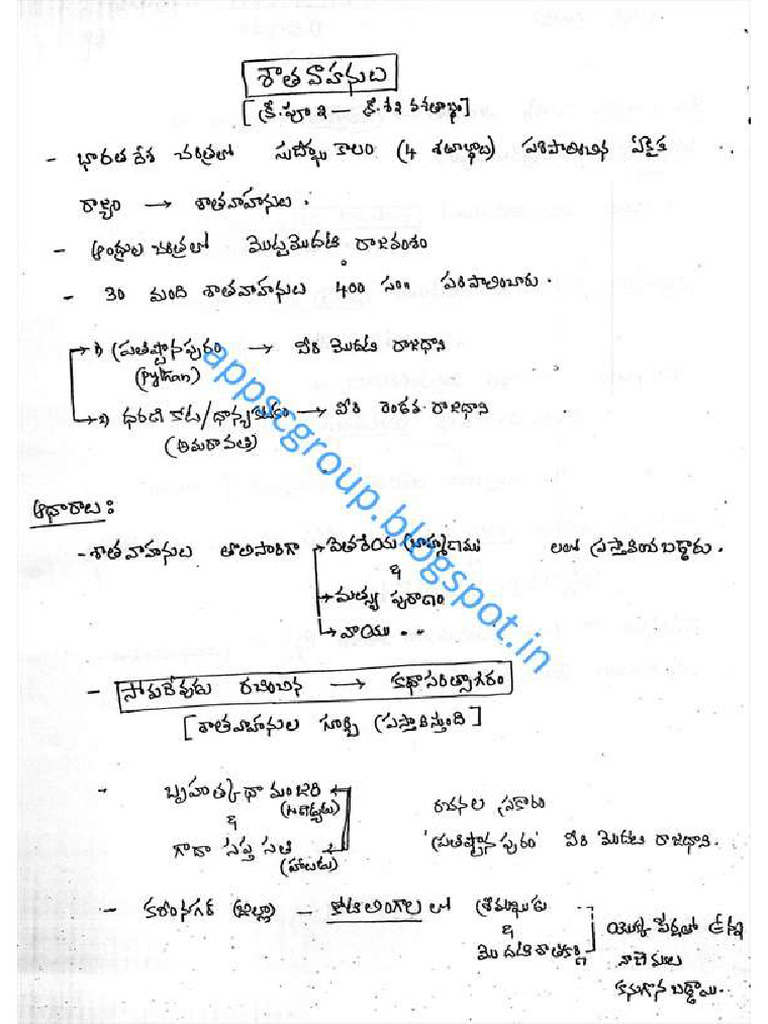 శాతవాహనులు
[క్రీ.పూ 2 — క్రీ.శ 2 వ శతాబ్దం]
- భారతదేశ చరిత్రలో సుదీర్ఘ కాలం (4 శతాబ్దాలు) పరిపాలించిన ఏకైక
రాజ్యం → శాతవాహనులు.
- ఆంధ్రుల చరిత్రలో మొట్టమొదటి రాజవంశం
- 30 మంది శాతవాహనులు 400 సం॥ పరిపాలించారు.
1) ప్రతిష్టానపురం → వీరి మొదటి రాజధాని
(pythan)
2) ధరణి కోట/ధాన్యకటకం → వీరి రెండవ రాజధాని
(అమరావతి)
ఆధారాలు:
- శాతవాహనులు తొలిసారిగా → ఐతరేయ బ్రాహ్మణము లలో ప్రస్తావించబడ్డారు.
&
→ మత్స్య పురాణం
→ వాయు " "
- సోమదేవుడు రచించిన → కథాసరిత్సాగరం
[శాతవాహనుల గూర్చి ప్రస్తావిస్తుంది]
- బృహత్కథా మంజరి రచనల ప్రకారం
&
గాథా సప్తసతి 'ప్రతిష్టానపురం' వీరి మొదటి రాజధాని.
(హాలుడు)
- కరీంనగర్ (జిల్లా) - కోటిలింగాలలో శ్రీముఖుడు
&
మొదటి శాతకర్ణి యొక్క పేర్లతో ఉన్న
నాణెములు
కనుగొనబడ్డాయి.
appscgroup.blogspot.in